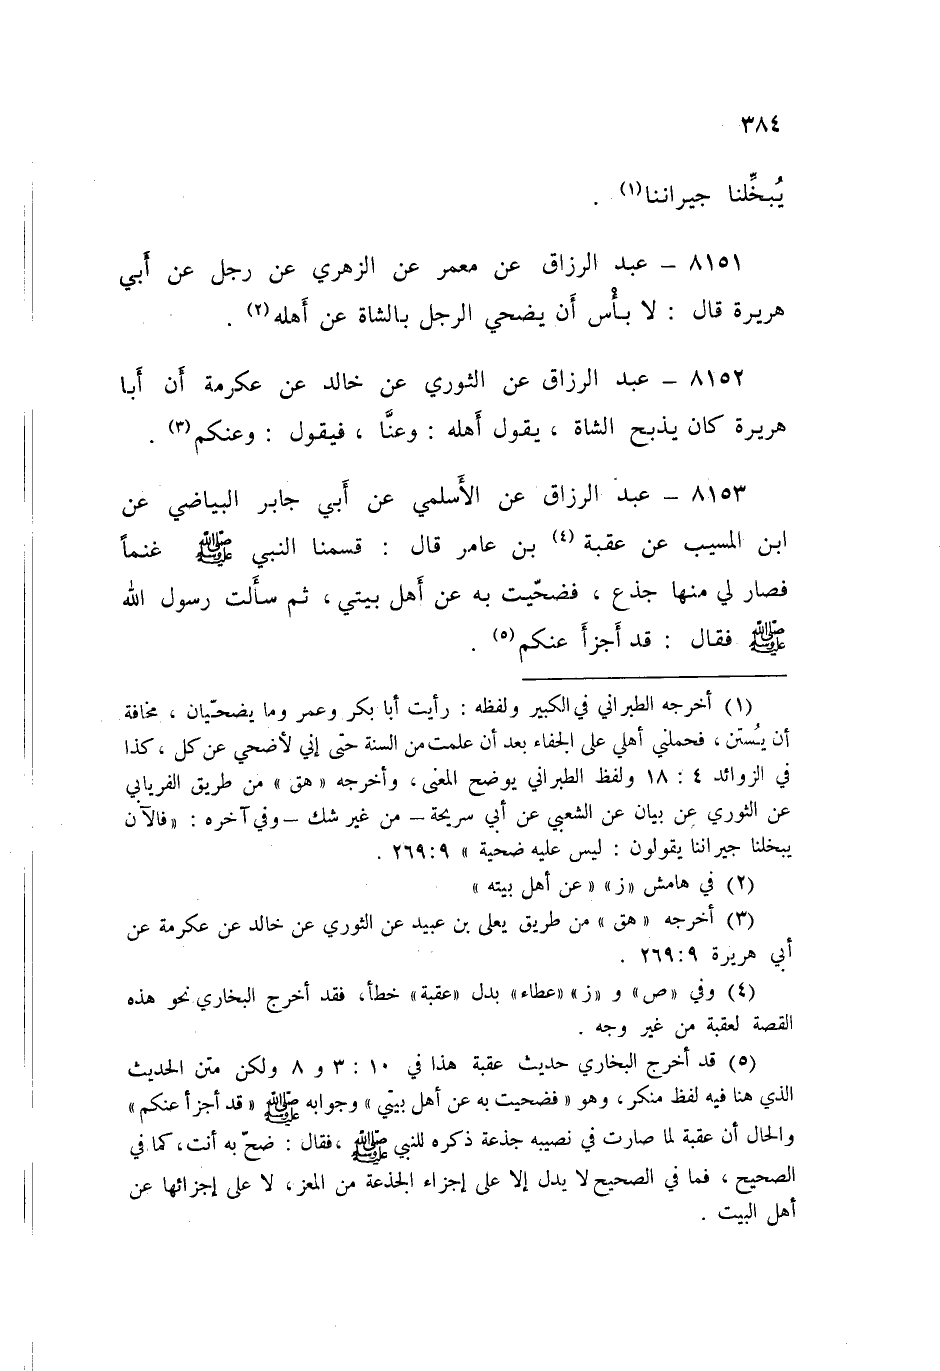 ٣٨٤
يُبخِّلنا جيراننا(١) .
٨١٥١ – عبد الرزاق عن معمر عن الزهري عن رجل عن أَبي
هريرة قال : لا بأْس أَن يضحي الرجل بالشاة عن أَهله(٢) .
٨١٥٢ – عبد الرزاق عن الثوري عن خالد عن عكرمة أَن أَبا
هريرة كان يذبح الشاة ، يقول أَهله : وعنَّا ، فيقول : وعنكم(٣) .
٨١٥٣ – عبد الرزاق عن الأَسلمي عن أَبي جابر البياضي عن
ابن المسيب عن عقبة (٤) بن عامر قال : قسمنا النبي ﷺ غنماً
فصار لي منها جذع ، فضحّيت به عن أَهل بيتي ، ثم سأَلت رسول الله
ﷺ فقال : قد أَجزأَ عنكم(٥) .
(١) أخرجه الطبراني في الكبير ولفظه : رأيت أبا بكر وعمر وما يضحّيان ، مخافة
أن يُستن ، فحملني أهلي على الجفاء بعد أن علمت من السنة حتى إني لأضحي عن كل ، كذا
في الزوائد ٤ : ١٨ ولفظ الطبراني يوضح المعنى ، وأخرجه « هق » من طريق الفريابي
عن الثوري عن بيان عن الشعبي عن أبي سريحة – من غير شك – وفي آخره : «فالآن
يبخلنا جيراننا يقولون : ليس عليه ضحية » ٩:٢٦٩ .
(٢) في هامش «ز» «عن أهل بيته »
(٣) أخرجه « هق » من طريق يعلى بن عبيد عن الثوري عن خالد عن عكرمة عن
أبي هريرة ٩:٢٦٩ .
(٤) وفي «ص» و «ز» «عطاء» بدل «عقبة» خطأ، فقد أخرج البخاري نحو هذه
القصة لعقبة من غير وجه .
(٥) قد أخرج البخاري حديث عقبة هذا في ١٠ : ٣ و ٨ ولكن متن الحديث
الذي هنا فيه لفظ منكر ، وهو « فضحيت به عن أهل بيتي » وجوابه ﷺ « قد أجزأ عنكم »
والحال أن عقبة لما صارت في نصيبه جذعة ذكره للنبي ﷺ ، فقال : ضحّ به أنت ، كما في
الصحيح ، فما في الصحيح لا يدل إلا على إجزاء الجذعة من المعز ، لا على إجزائها عن
أهل البيت .